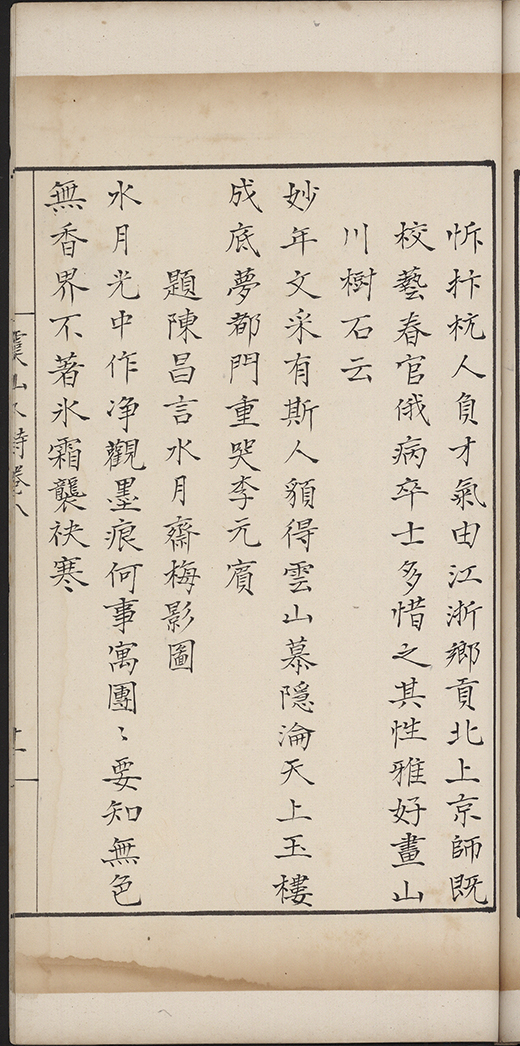 忻抃杭人負才氣由江浙鄉貢北上京師既
校藝春官俄病卒士多惜之其性雅好畫山
川樹石云
妙年文采有斯人䫉得雲山慕隱淪天上玉樓
成底夢都門重哭李元賓
題陳昌言水月齋梅影圖
水月光中作净觀墨痕何事寓團〻要知無色
無香界不著氷霜襲袂寒
山人詩卷八